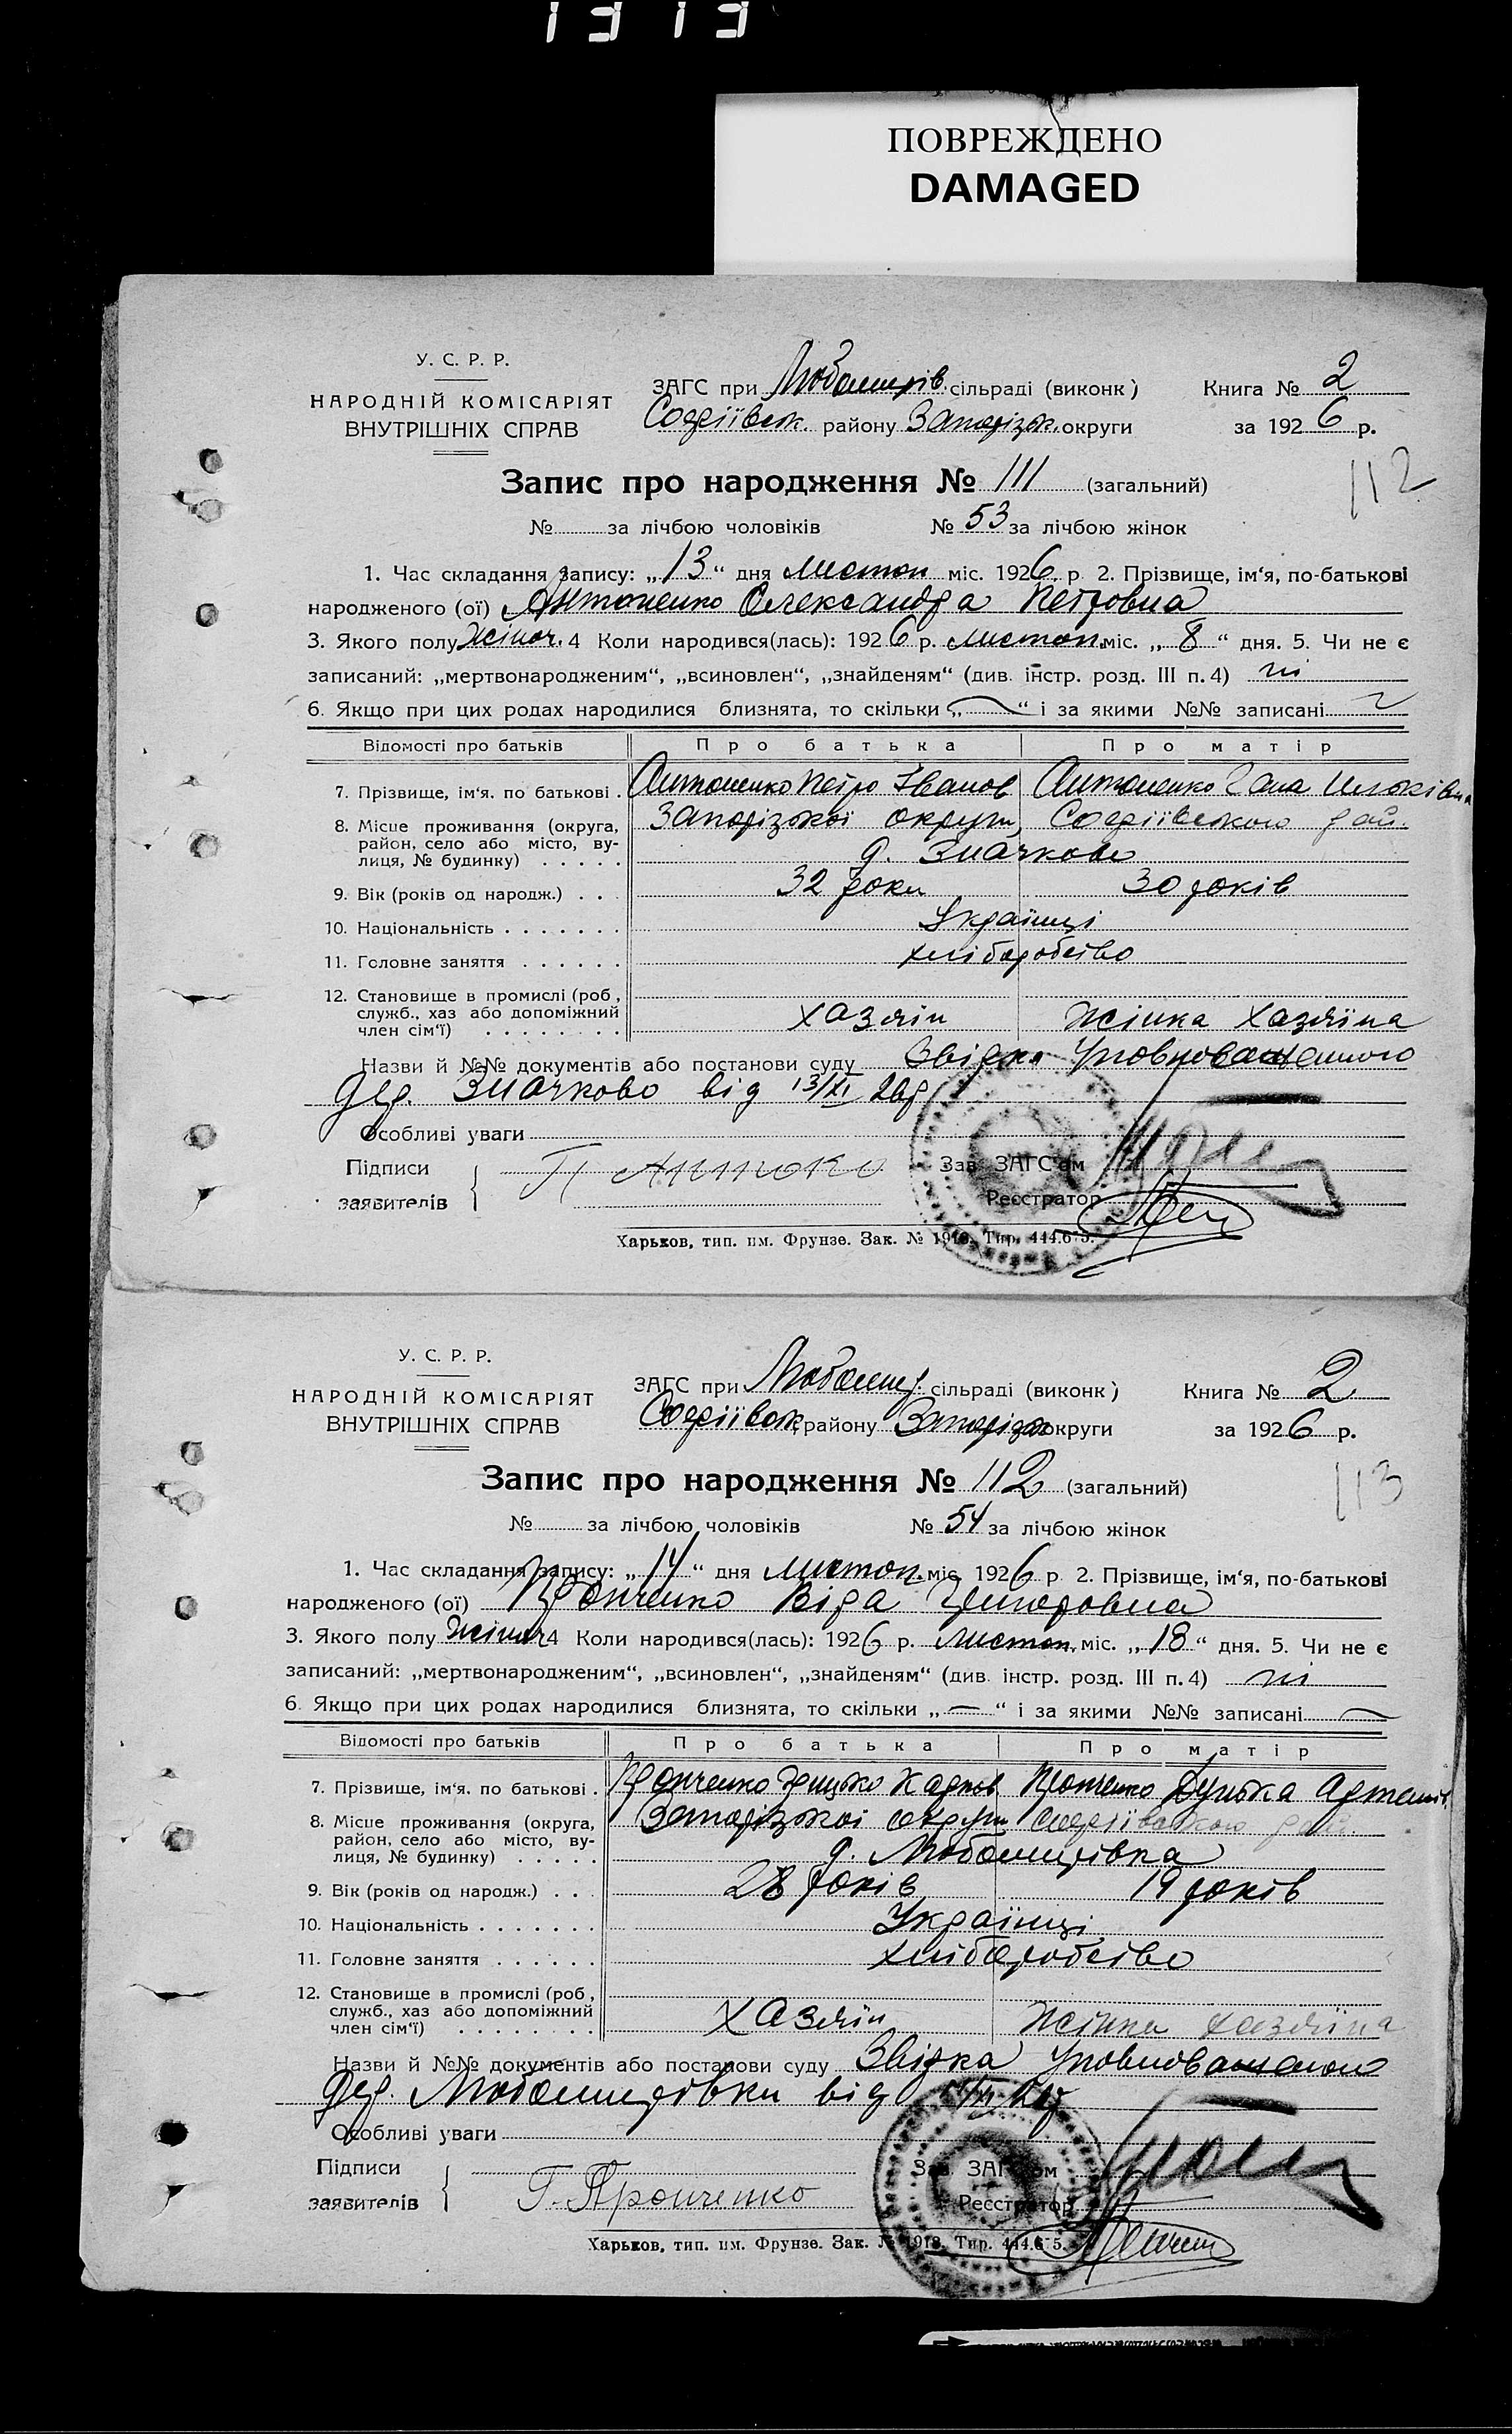 1313
ПОВРЕЖДЕНО
DAMAGED
У. С. Р. Р.
НАРОДНІЙ КОМІСАРІЯТ
ВНУТРІШНІХ СПРАВ
ЗАГС при Любомирів. сільраді (виконк)
Софіївськ. району Запорізьк. округи
Книга № 2
за 1926 р.
112
Запис про народження № 111 (загальний)
№ за лічбою чоловіків № 53 за лічбою жінок
1. Час складання запису: „13“ дня листоп міс. 1926 р 2. Прізвище, ім‘я, по-батькові
народженого (ої) Антоненко Олександра Петровна
3. Якого полу жіноч. 4 Коли народився(лась): 1926 р. листоп. міс. „8“ дня. 5. Чи не є
записаний: „мертвонародженим“, „всиновлен“, „знайденям“ (див. інстр. розд. III п. 4) ні
6. Якщо при цих родах народилися близнята, то скільки „—“ і за якими №№ записані
Відомості про батьків Про батька Про матір
7. Прізвище, ім‘я. по батькові . Антоненко Петро Іванов Антоненко Гана
8. Місце проживання (округа, район, село або місто, вулиця, № будинку) . . . . . Запорізької округи, Софіївського рай.
д. Значково
9. Вік (років од народж.) . . . 32 роки 30 років
10. Національність . . . . . . . Українці
11. Головне заняття . . . . . . хліборобство
12. Становище в промислі (роб, служб., хаз або допоміжний член сім‘ї) . . . . . . . . хазяїн Жінка хазяїна
Назви й №№ документів або постанови суду Звідка Уповноваженного
дер. Значково від 13/XI 26р
Особливі уваги
Підписи
заявителів
Зав. ЗАГС‘ом
Реєстратор
Харьков, тип. им. Фрунзе. Зак. № 1918. Тир. 444.675.
У. С. Р. Р.
НАРОДНІЙ КОМІСАРІЯТ
ВНУТРІШНІХ СПРАВ
ЗАГС при Любомир. сільраді (виконк)
Софіївськ. району Запорізьк округи
Книга № 2
за 1926 р.
113
Запис про народження № 112 (загальний)
№ за лічбою чоловіків № 54 за лічбою жінок
1. Час складання запису: „14“ дня листоп. міс 1926 р 2. Прізвище, ім‘я, по-батькові
народженого (ої) Пронченко Віра Григоровна
3. Якого полу жіноч 4 Коли народився(лась): 1926 р. листоп. міс. „18“ дня. 5. Чи не є
записаний: „мертвонародженим“, „всиновлен“, „знайденям“ (див. інстр. розд. III п. 4) ні
6. Якщо при цих родах народилися близнята, то скільки „—“ і за якими №№ записані
Відомості про батьків Про батька Про матір
7. Прізвище, ім‘я. по батькові . Пронченко Грицько Карпов Пронченко Дунька Артемів.
8. Місце проживання (округа, район, село або місто, вулиця, № будинку) . . . . . Запорізької округи Софіївського рай.
д. Любомирівка
9. Вік (років од народж.) . . . 28 років 19 років
10. Національність . . . . . . . Українці
11. Головне заняття . . . . . . хліборобство
12. Становище в промислі (роб, служб., хаз або допоміжний член сім‘ї) . . . . . . . . хазяїн Жінка хазяїна
Назви й №№ документів або постанови суду Звідка Уповноваженого
дер. Любомирівки від
Особливі уваги
Підписи
заявителів
Г. Пронченко
Зав. ЗАГС‘ом
Реєстратор
Харьков, тип. им. Фрунзе. Зак. № 1918. Тир. 444.675.